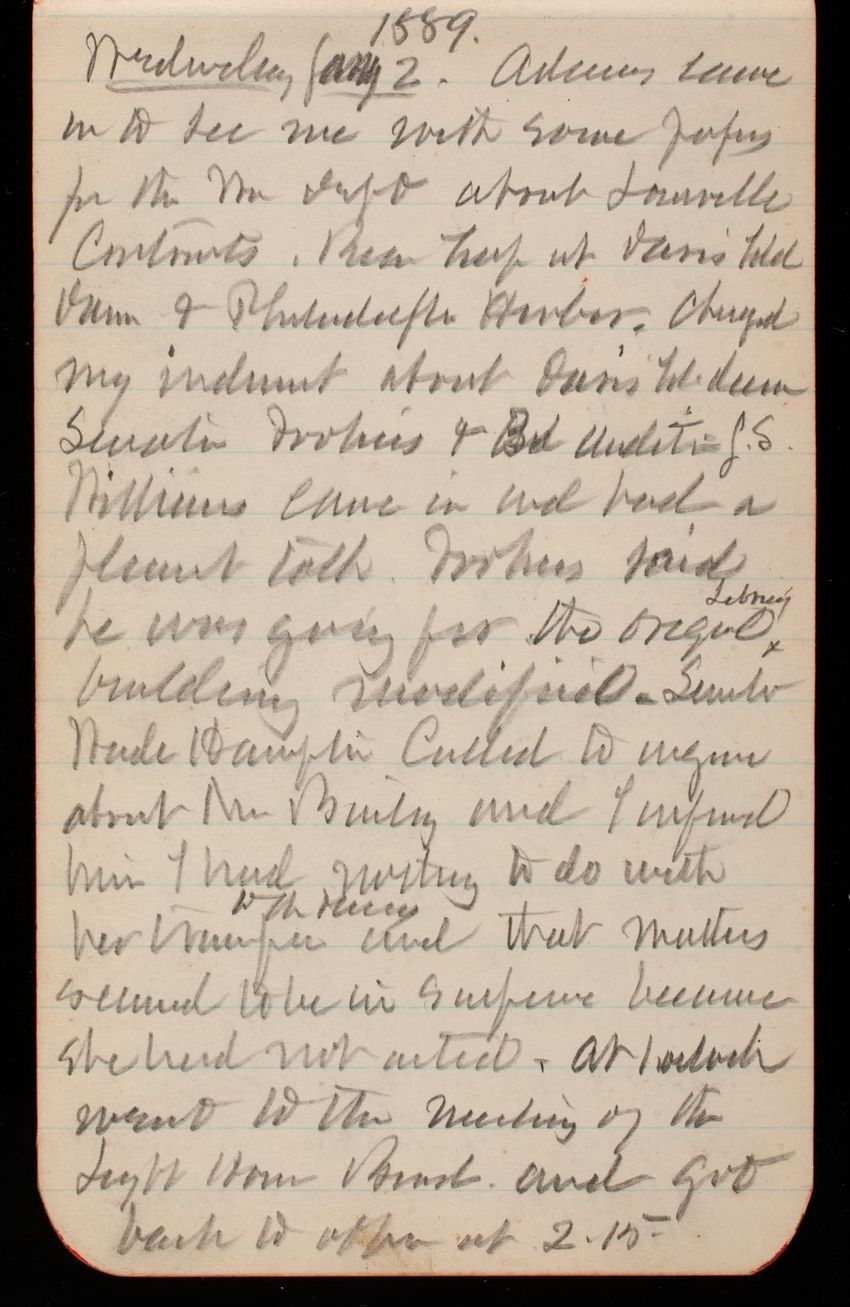 1889.
Wednesday Jany 2. Adams came
in to see me with some papers
for the War Dept about Louisville
Contracts. Rear Trap at Davis Isld
Dam & Philadelphia Harbor. Changed
my indorsmt about Davis Isld dam
Senator & 3d Auditor J.S.
Williams came in and had a
pleasant talk. said
he was going for the original
Library
building modified. Senator
Wade Hampton Called to inquire
about Mrs and I informed
him I had nothing to do with
her transfer and that matters
seemed to be in suspense because
she had not acted. At 1 oclock
went to the meeting of the
Light House Board. and got
back to office at 2.15-